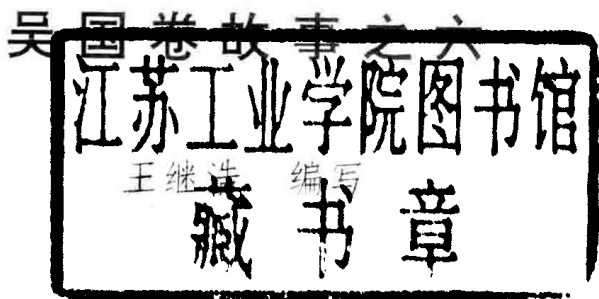 吴国卷故事之六
江苏工业学院图书馆
王继选 编写
藏书章